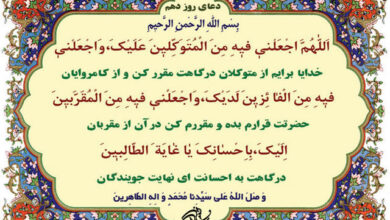 دعای روز دهم
بِسْمِ اللهِ الرَّحْمنِ الرَّحِیْمِ
اَللّهُمَّ اجْعَلْنی فیهِ مِنَ الْمُتَوَکِّلینَ عَلَیْکَ،وَاجْعَلْنی
خدایا برایم از متوکلان درگاهت مقرر کن و از کامروایان
فیهِ مِنَ الْفآئِزینَ لَدَیْکَ،وَاجْعَلْنی فیهِ مِنَ الْمُقَرَّبینَ
حضرتت قرارم بده و مقررم کن در آن از مقربان
اِلَیْکَ،بِاِحْسانِکَ یا غایَةَ الطّالِبینَ
درگاهت به احسانت ای نهایت جویندگان
وَ صَلَّ اللهُ عَلی سَیِّدِنا مُحَمَّد وَ الِهِ الطّاهِرینَ